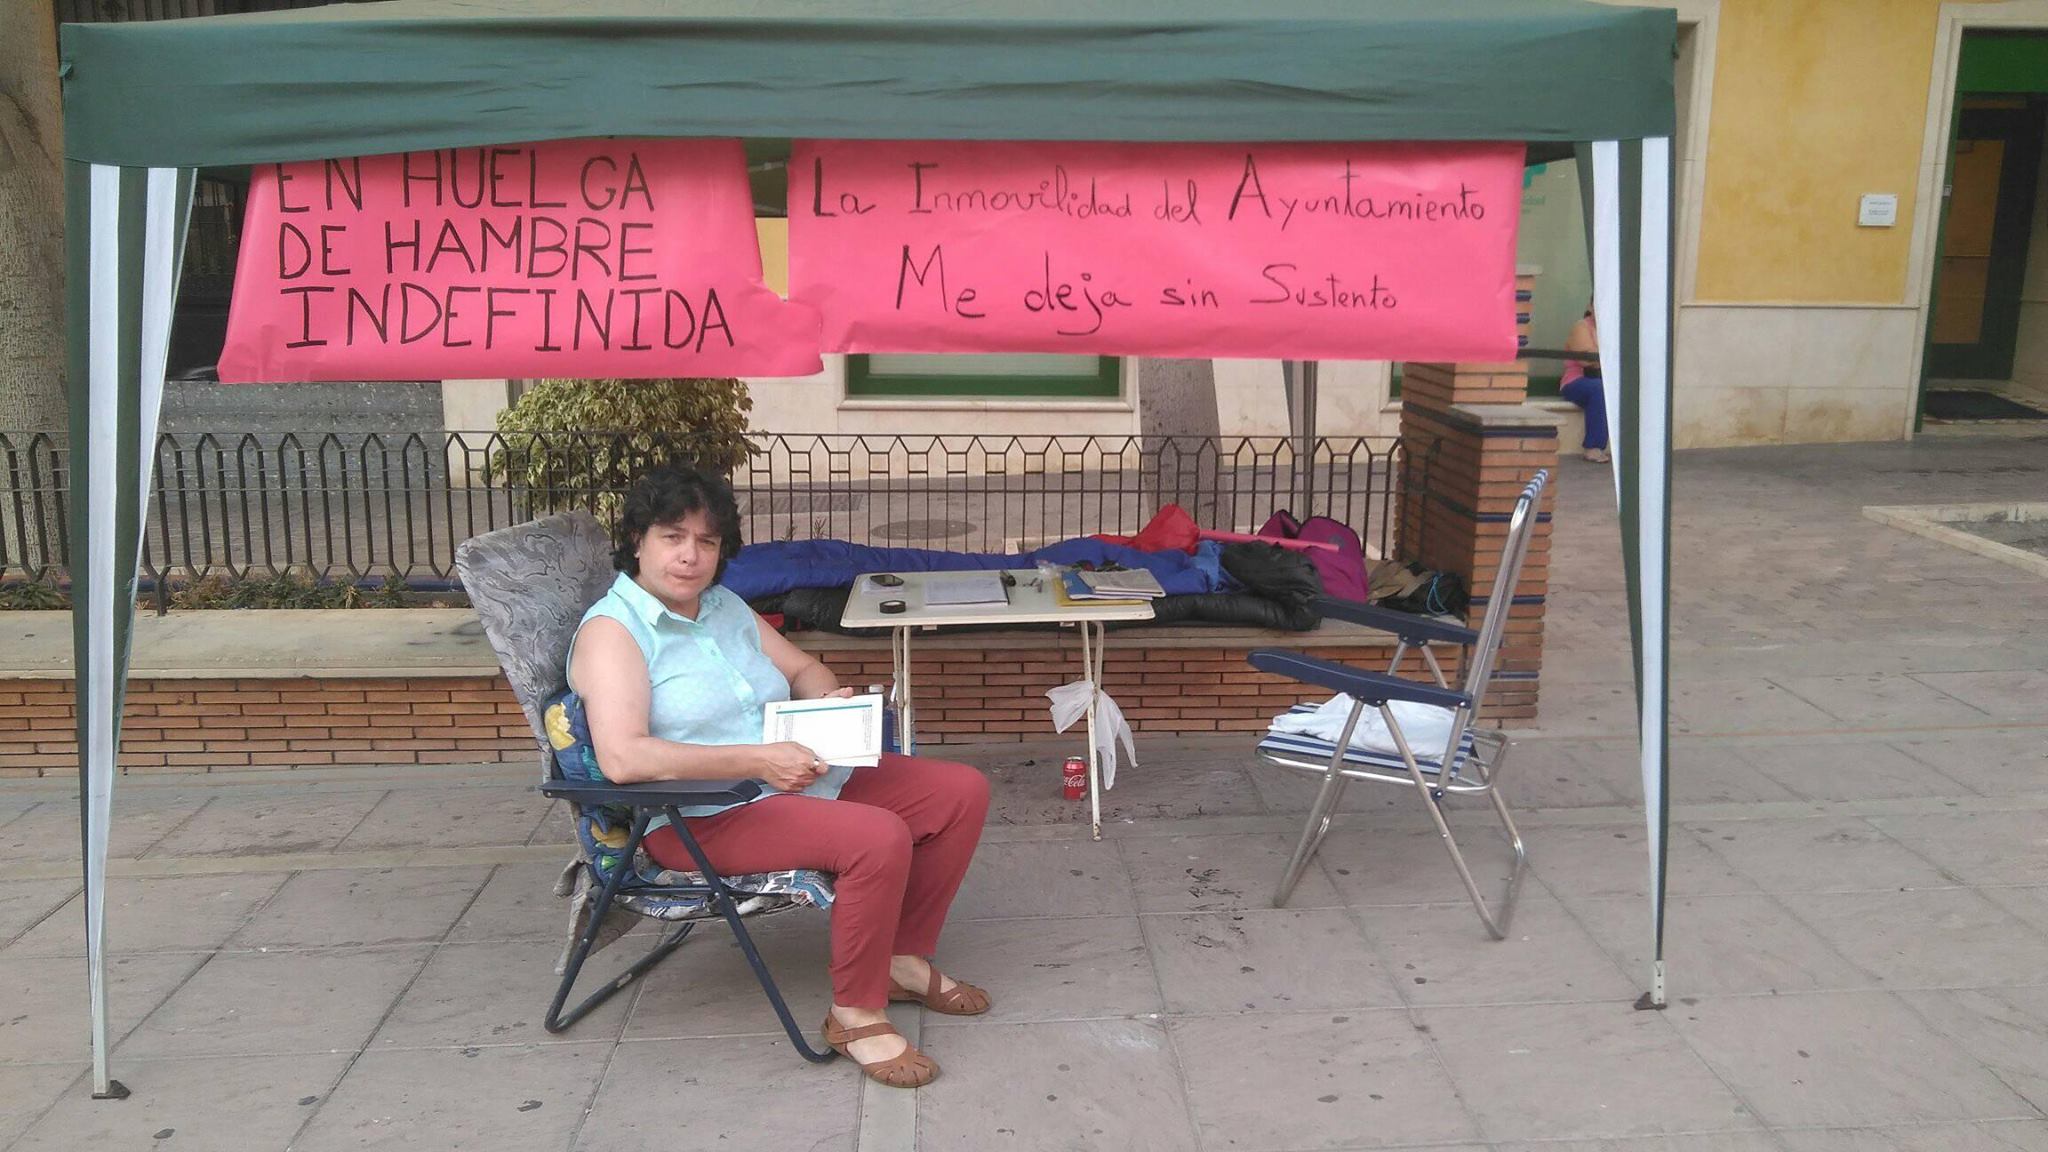 EN HUELGA
DE HAMBRE
INDEFINIDA
La Inmovilidad del Ayuntamiento
Me deja sin Sustento
Coca-Cola